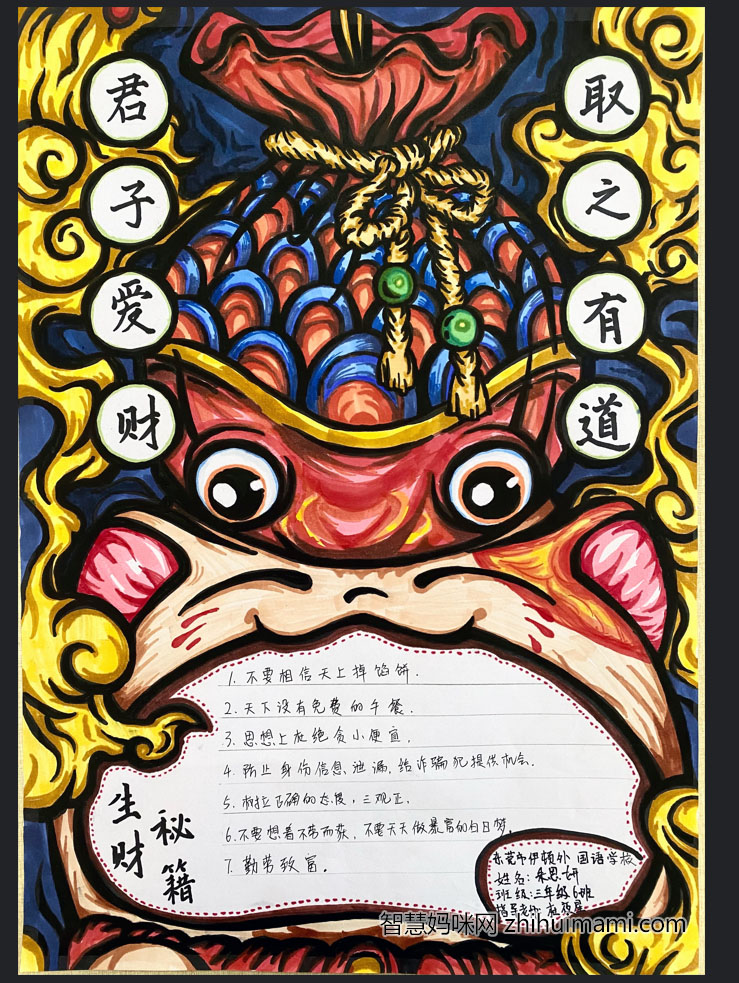 君子爱财
取之有道
1. 不要相信天上掉馅饼.
2. 天下没有免费的午餐.
3. 思想上杜绝贪小便宜.
4. 防止身份信息泄漏,给诈骗犯提供机会.
5. 树立正确的态度,三观正.
6. 不要想着不劳而获,不要天天做暴富的白日梦.
7. 勤劳致富.
生财
秘籍
东莞市伊顿外国语学校
姓名: 思妍
班级: 三年级6班
指导老师:
智慧妈咪网 zhihuimami.com